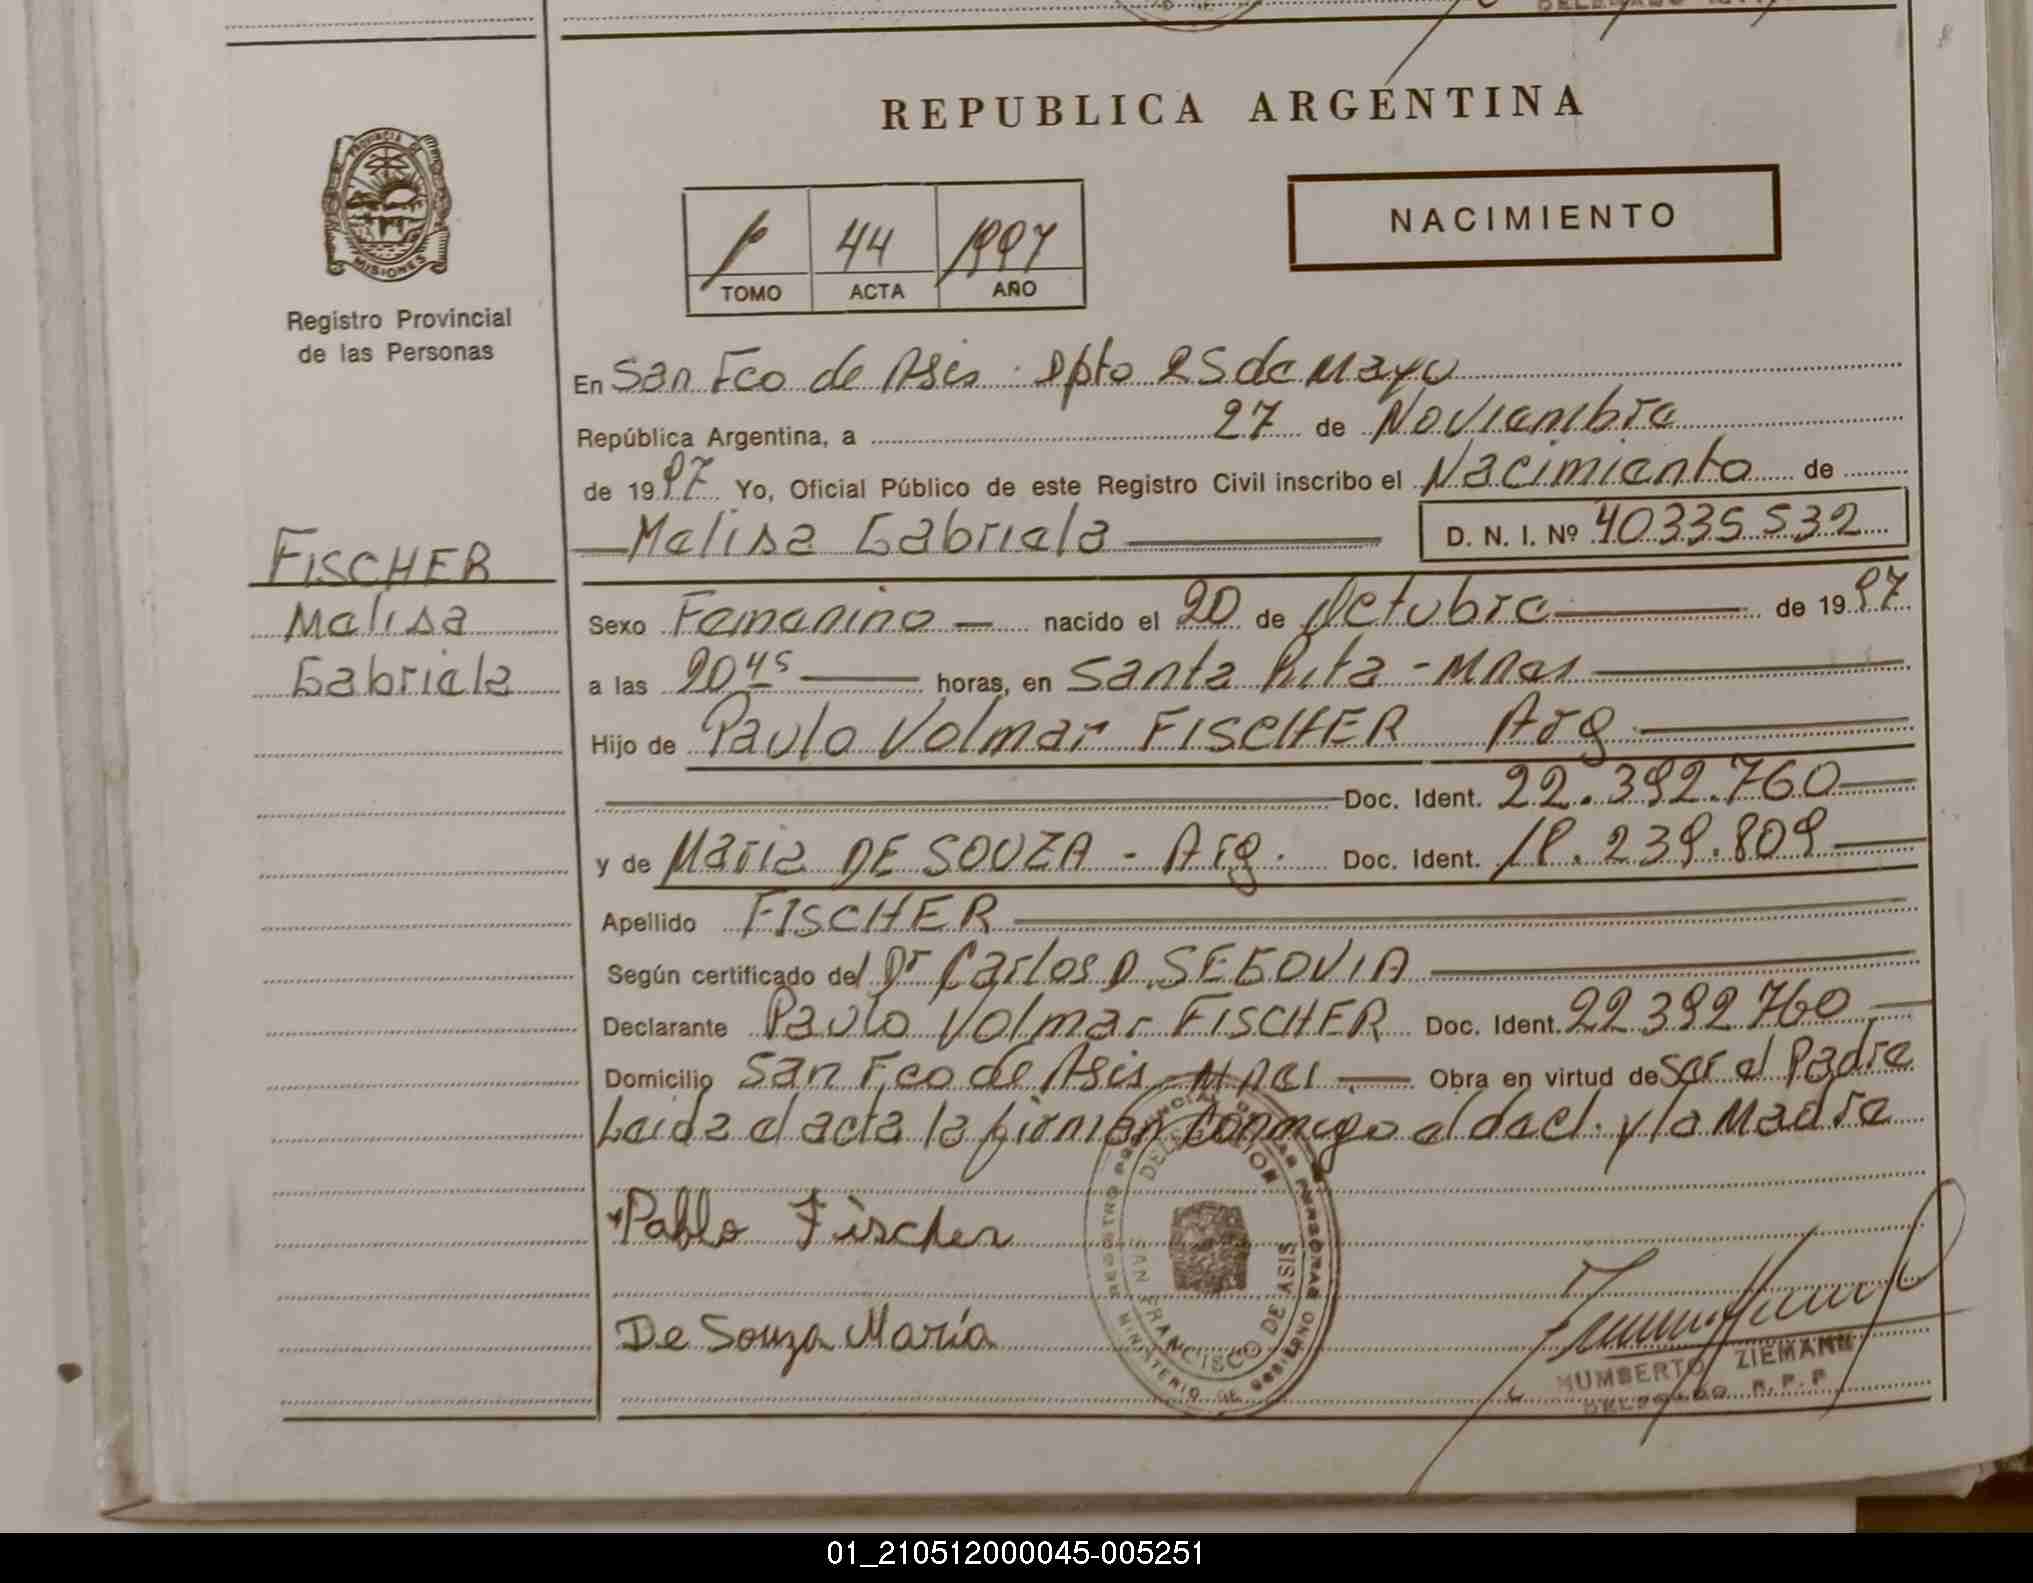 REPUBLICA ARGENTINA
PROVINCIA DE
MISIONES
Registro Provincial
de las Personas
1º 44 1997
TOMO ACTA AÑO
NACIMIENTO
En San Fco de Asis - Dpto 25 de Mayo
República Argentina, a 27 de Noviembre
de 1997 Yo, Oficial Público de este Registro Civil inscribo el Nacimiento de
Melisa Gabriela D. N. I. Nº 40335532
FISCHER
Melisa
Gabriela
Sexo Femenino nacido el 20 de Octubre de 1997
a las 20 45 horas, en Santa Rita - Mnes
Hijo de Paulo Volmar FISCHER Arg
Doc. Ident. 22.392.760
y de Maria DE SOUZA - Arg. Doc. Ident. 18.239.809
Apellido FISCHER
Según certificado del Dr Carlos D. SEGOVIA
Declarante Paulo Volmar FISCHER Doc. Ident. 22392760
Domicilio San Fco de Asis - Mnes Obra en virtud de ser el Padre
Leida el acta la firman conmigo el decl. y la Madre
Pablo Fischer
De Souza María
REGISTRO PROVINCIAL DE LAS PERSONAS
MINISTERIO DE GOBIERNO
SAN FRANCISCO DE ASIS
HUMBERTO ZIEMANN
DELEGADO R.P.P
01_210512000045-005251